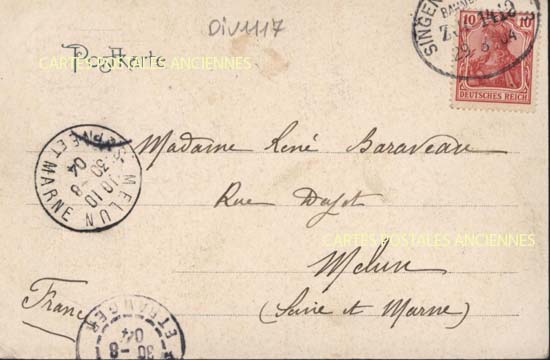 DIV1117
Postkarte
CARTES POSTALES ANCIENNES
SINGEN
BAHNP
29 8 04
10 10
DEUTSCHES REICH
MELUN
SNE ET MARNE
10 10
30 -8
04
Madame René Baraveau
Rue Dajot
CARTES POSTALES ANCIENNES
Melun
(Seine et Marne)
France
ETRANGER
30 -8
04